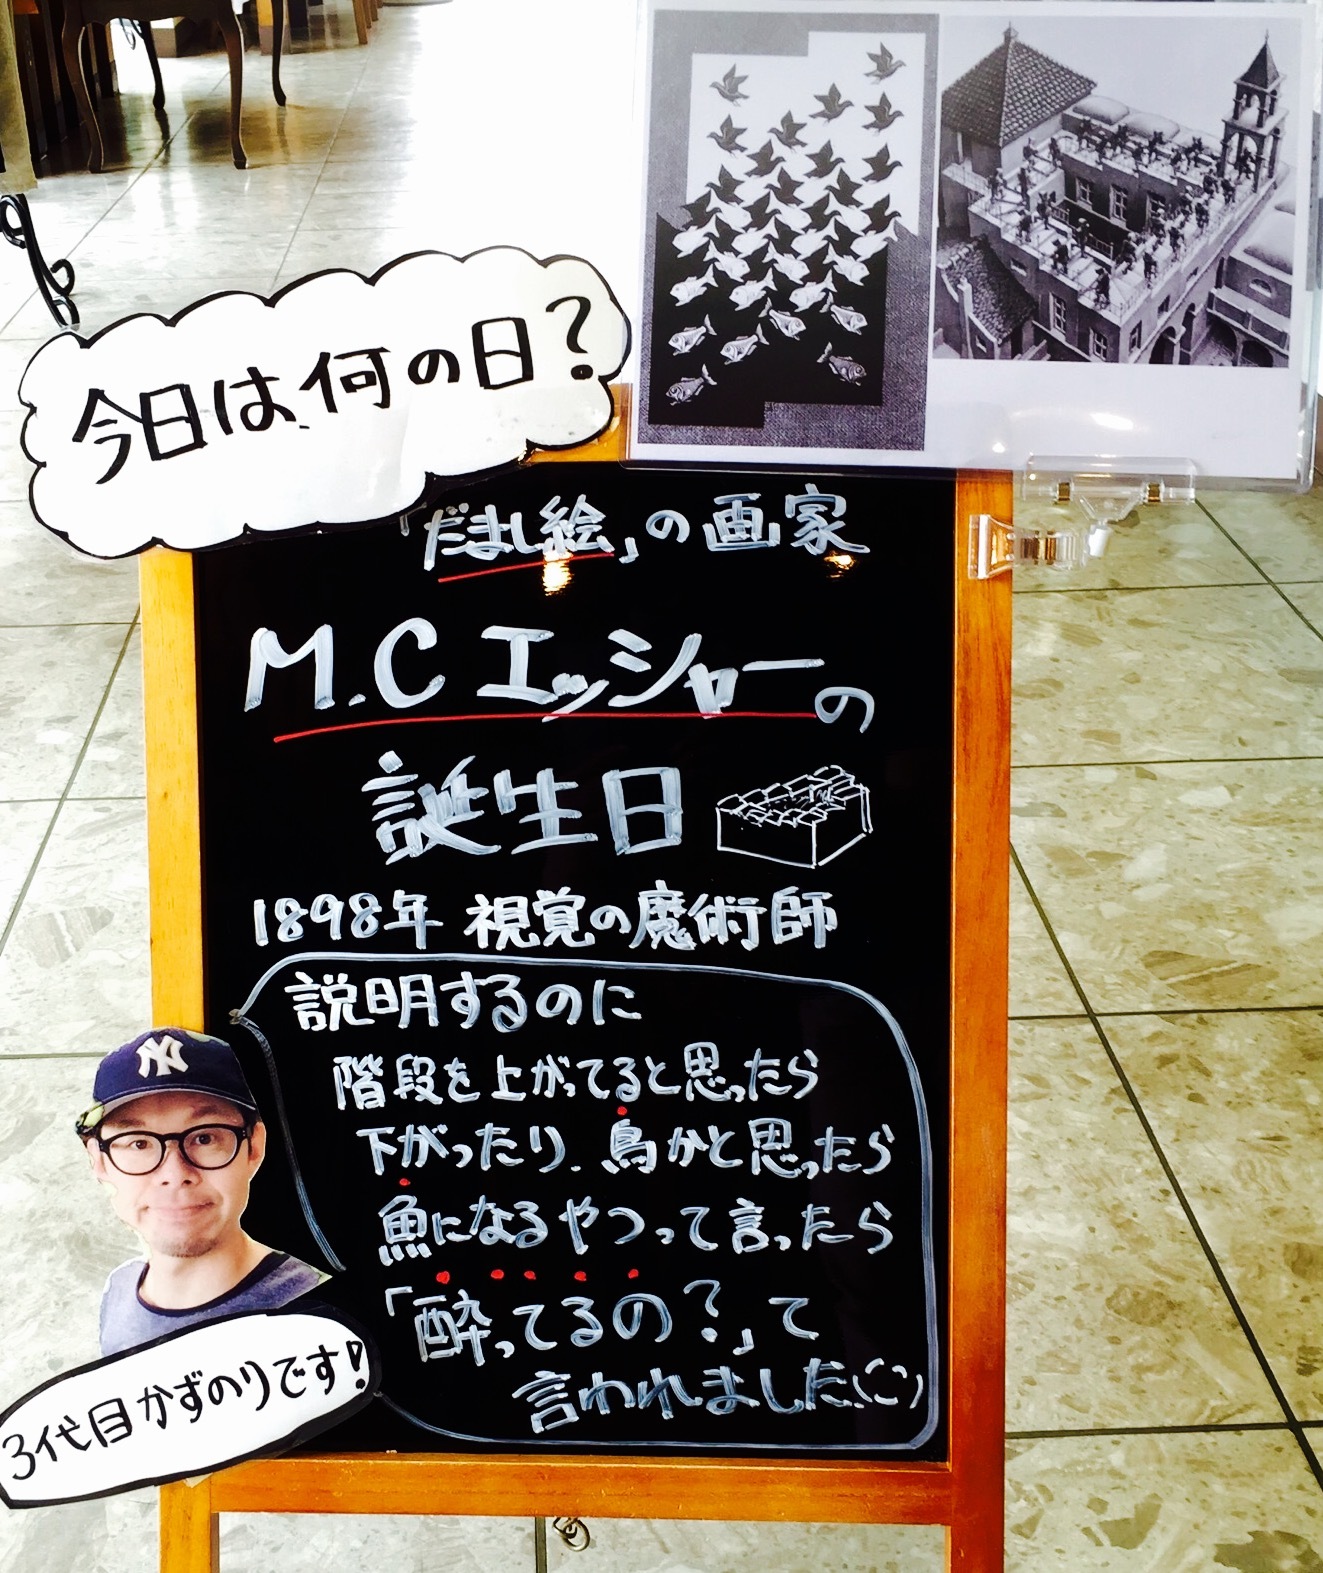 今日は何の日?
「だまし絵」の画家
M.C エッシャーの
誕生日
1898年 視覚の魔術師
説明するのに
階段を上がってると思ったら
下がったり、鳥かと思ったら
魚になるやつって言ったら
「酔ってるの?」て
言われました(
NY
3代目かずのりです!